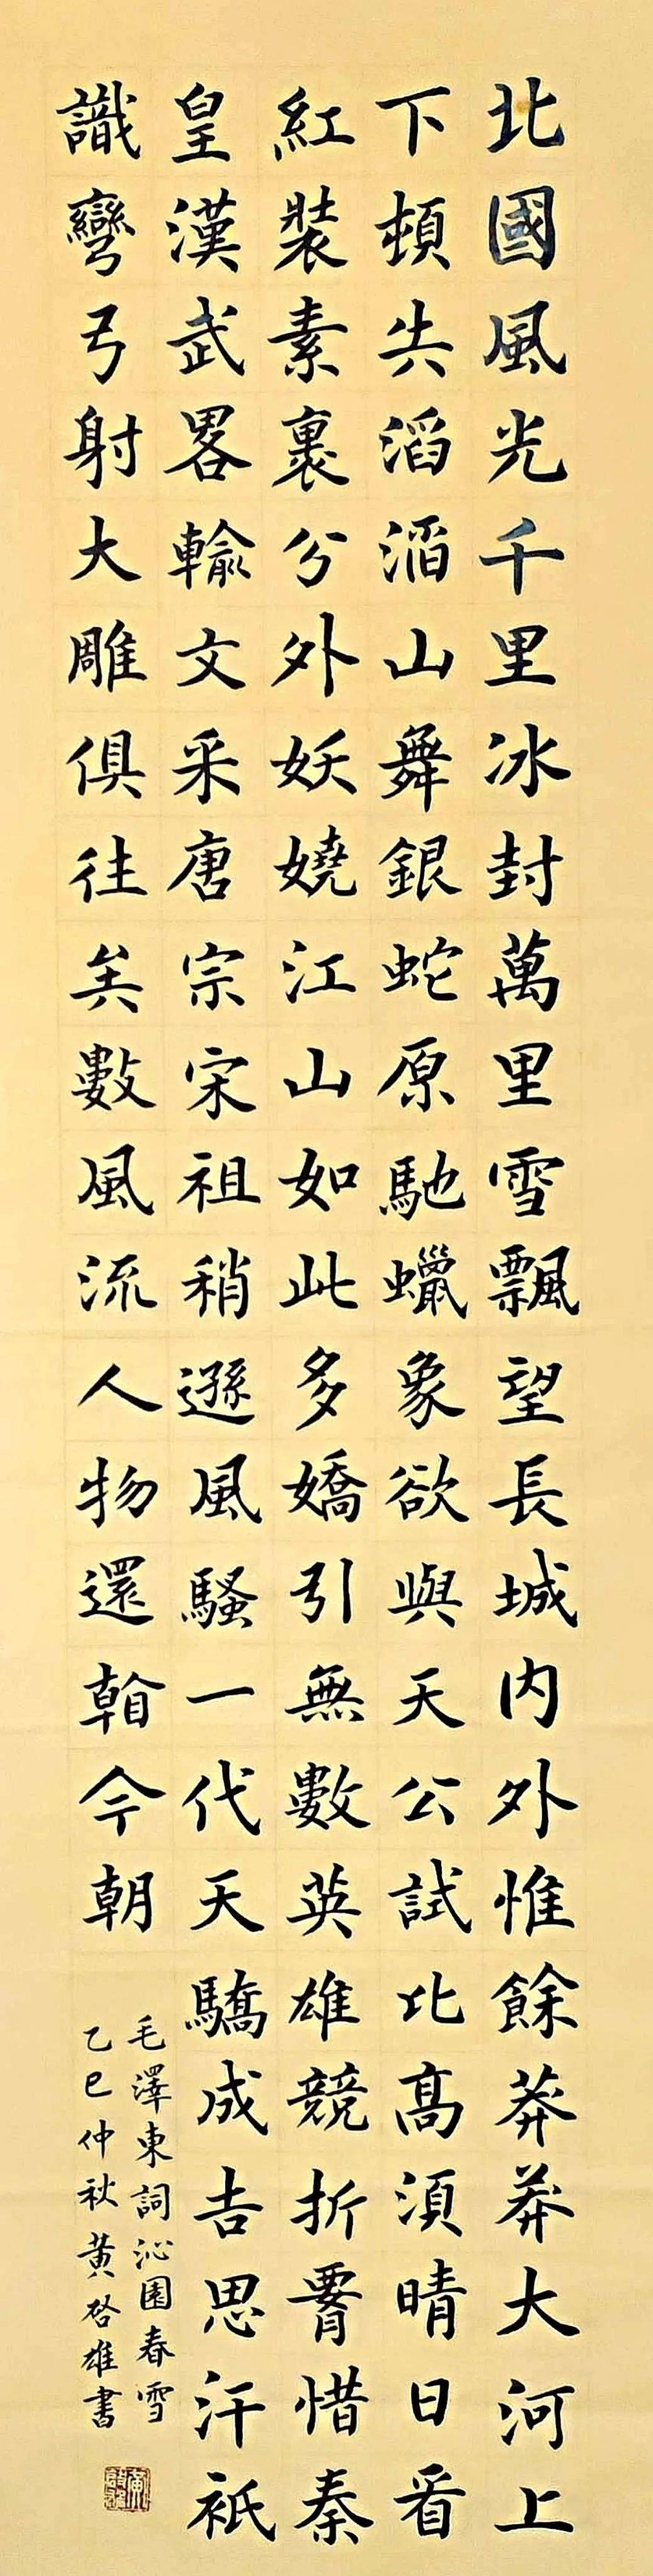 北國風光千里冰封萬里雪飄望長城内外惟餘莽莽大河上
下頓失滔滔山舞銀蛇原馳蠟象欲與天公試比高須晴日看
紅裝素裹分外妖嬈江山如此多嬌引無數英雄競折腰惜秦
皇漢武畧輸文采唐宗宋祖稍遜風騷一代天驕成吉思汗祇
識彎弓射大雕俱往矣數風流人物還看今朝
毛澤東詞沁園春雪
乙巳仲秋黄啓雄書